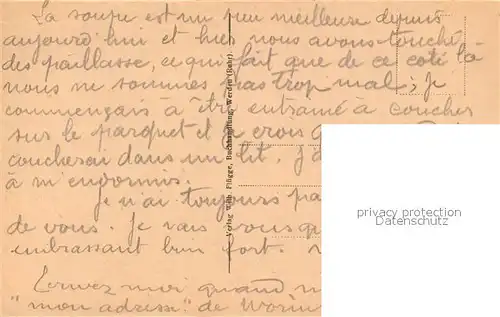 La soupe est un peu meilleure depuis
aujourd'hui et hier nous avons touché
des paillasse, ce qui fait que de ce coté là
nous ne sommes pas trop mal; je
commençais à être entrainé à coucher
sur le parquet et je crois
coucherai dans un lit. J'
à m'endormir.
Je n'ai toujours pa
de vous. Je vais vous qu
embrassant bien fort.
Ecrivez moi quand m
"mon adresse" de Worin
Verlag Wilh. Flügge, Buchhandlung, Werden (Ruhr).
privacy protection
Datenschutz